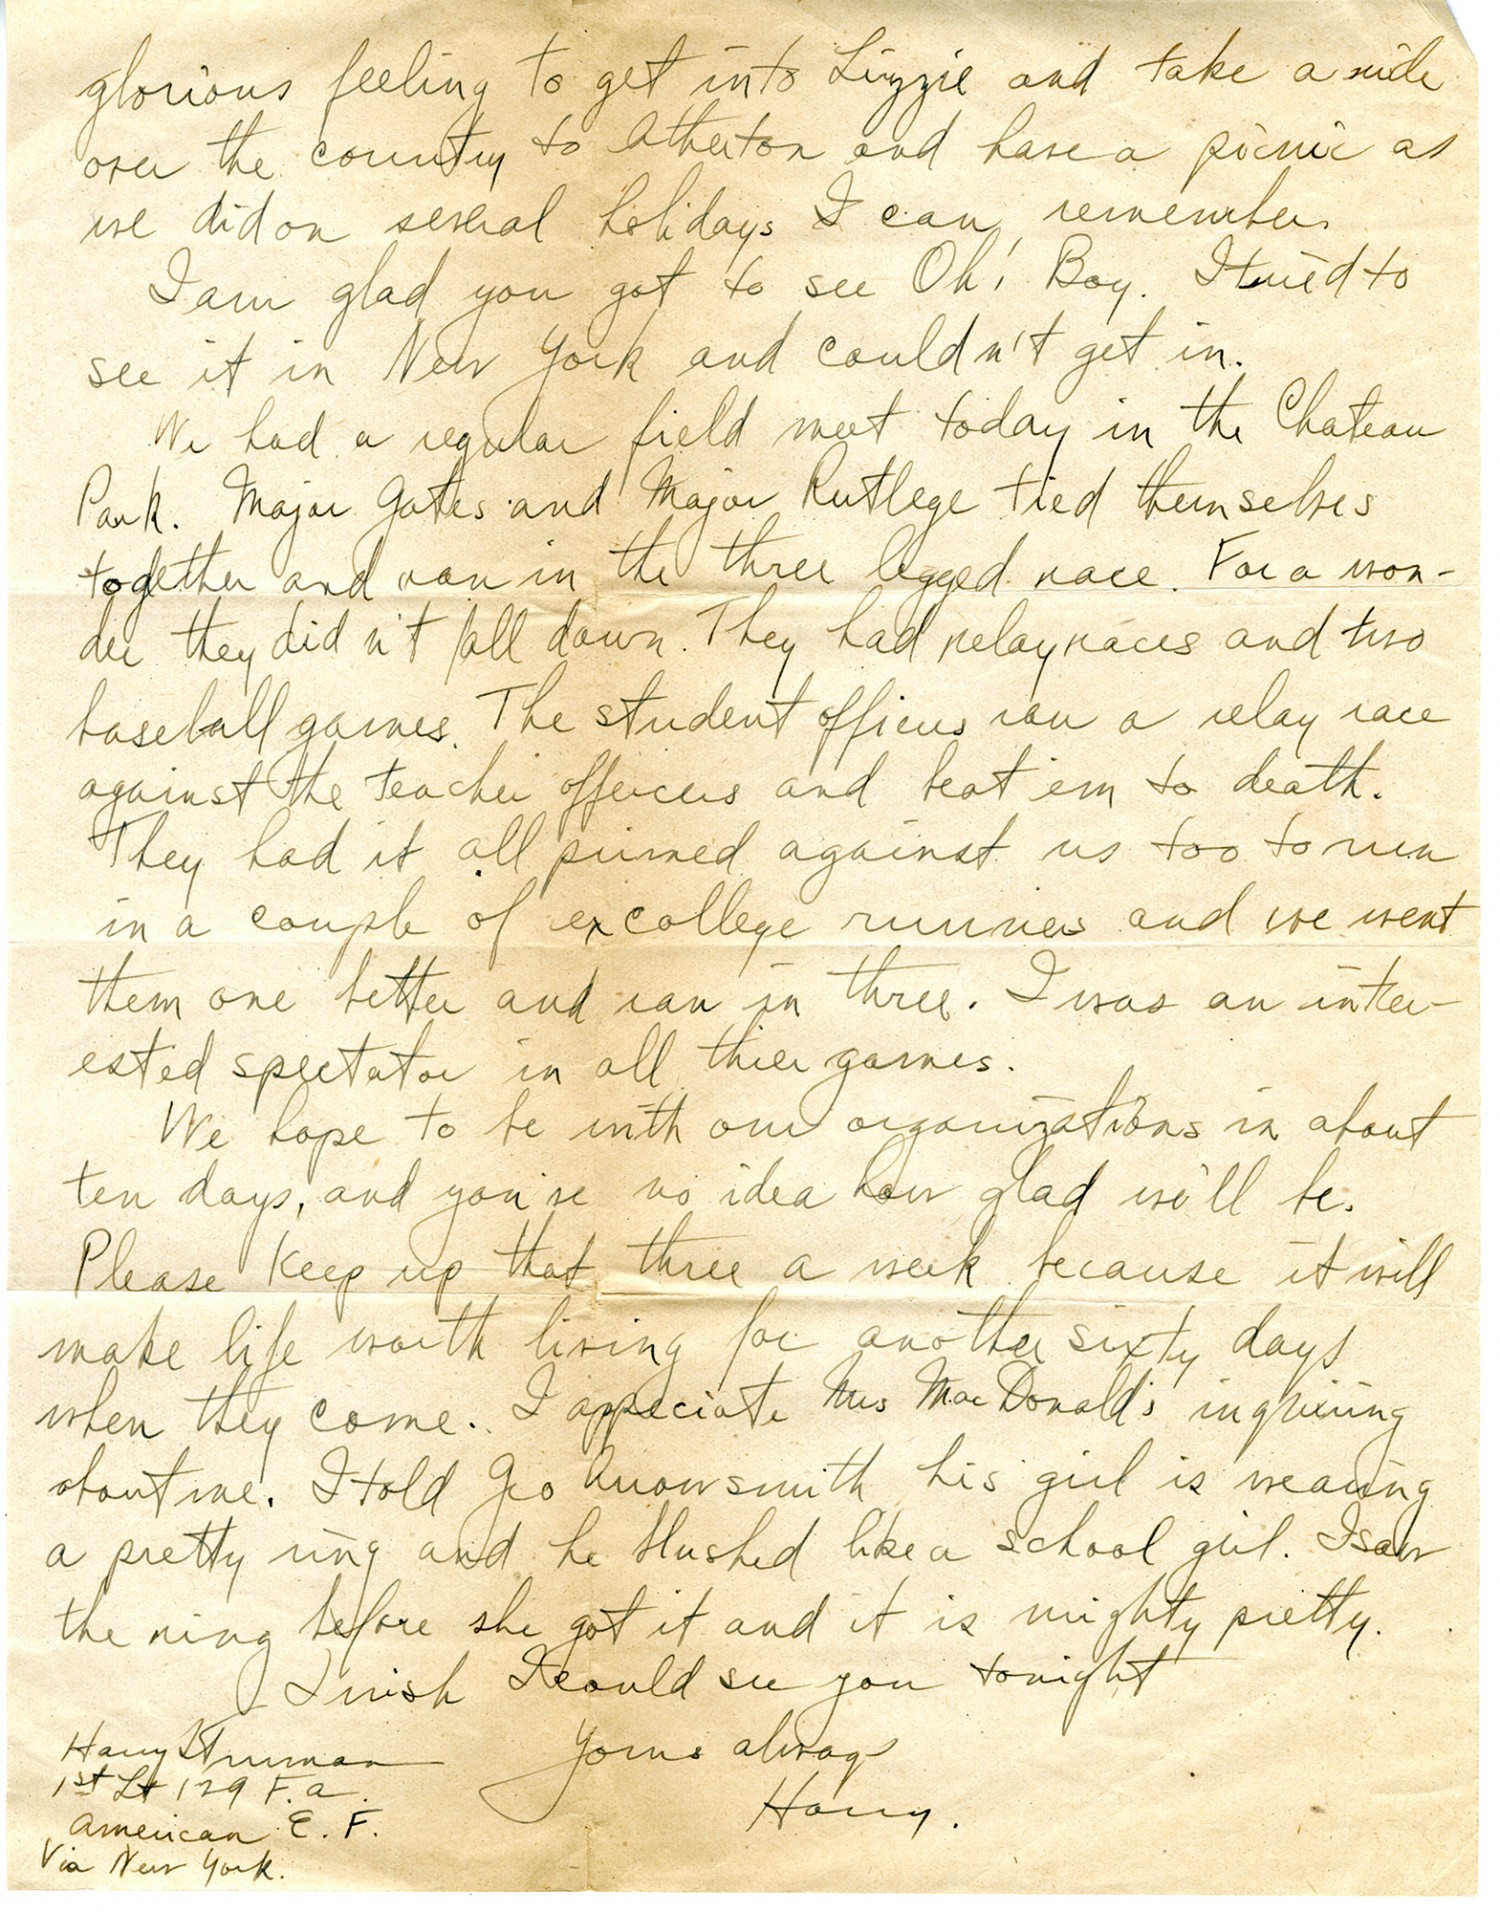 glorious feeling to get into Lizzie and take a ride
over the country to Atherton and have a picnic as
we did on several holidays I can remember.
I am glad you got to see Oh! Boy. I tried to
see it in New York and couldn't get in.
We had a regular field meet today in the Chateau
Park. Major Gates and Major Rutlege tied themselves
together and ran in the three legged race. For a won-
der they didn't fall down. They had relay races and two
baseball games. The student officers ran a relay race
against the teacher officers and beat 'em to death.
They had it all primed against us too to run
in a couple of ex college runners and we went
them one better and ran in three. I was an inter-
ested spectator in all thier games.
We hope to be with our organizations in about
ten days, and you've no idea how glad we'll be.
Please keep up that three a week because it will
make life worth living for another sixty days
when they come. I appeciate Mrs MacDonald's inquiring
about me. I told Geo Arrowsmith his girl is wearing
a pretty ring and he blushed like a school girl. I saw
the ring before she got it and it is mighty pretty.
I wish I could see you tonight
Yours always
Harry.
Harry S Truman
1st Lt 129 F.A.
American E. F.
Via New York.